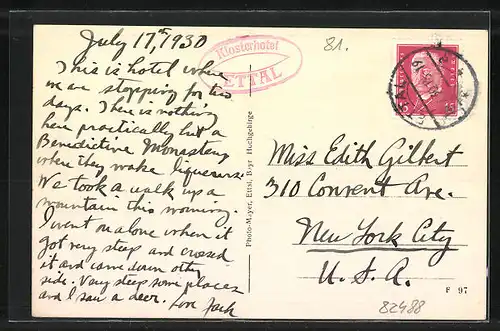 July 17, 1930
This is hotel where
we are stopping for two
days. There is nothing
here practically but a
Benedictine Monastery
where they make liqueurs.
We took a walk up a
mountain this morning.
I went on alone when it
got very steep and crossed
it and came down other
side. Very steep some places
and I saw a deer. Love Jack
Klosterhotel
ETTAL
81.
Photo-Mayer, Ettal, Bayr. Hochgebirge
Miss Edith Gilbert
310 Convent Ave.
New York City
U. S. A.
F 97
82488